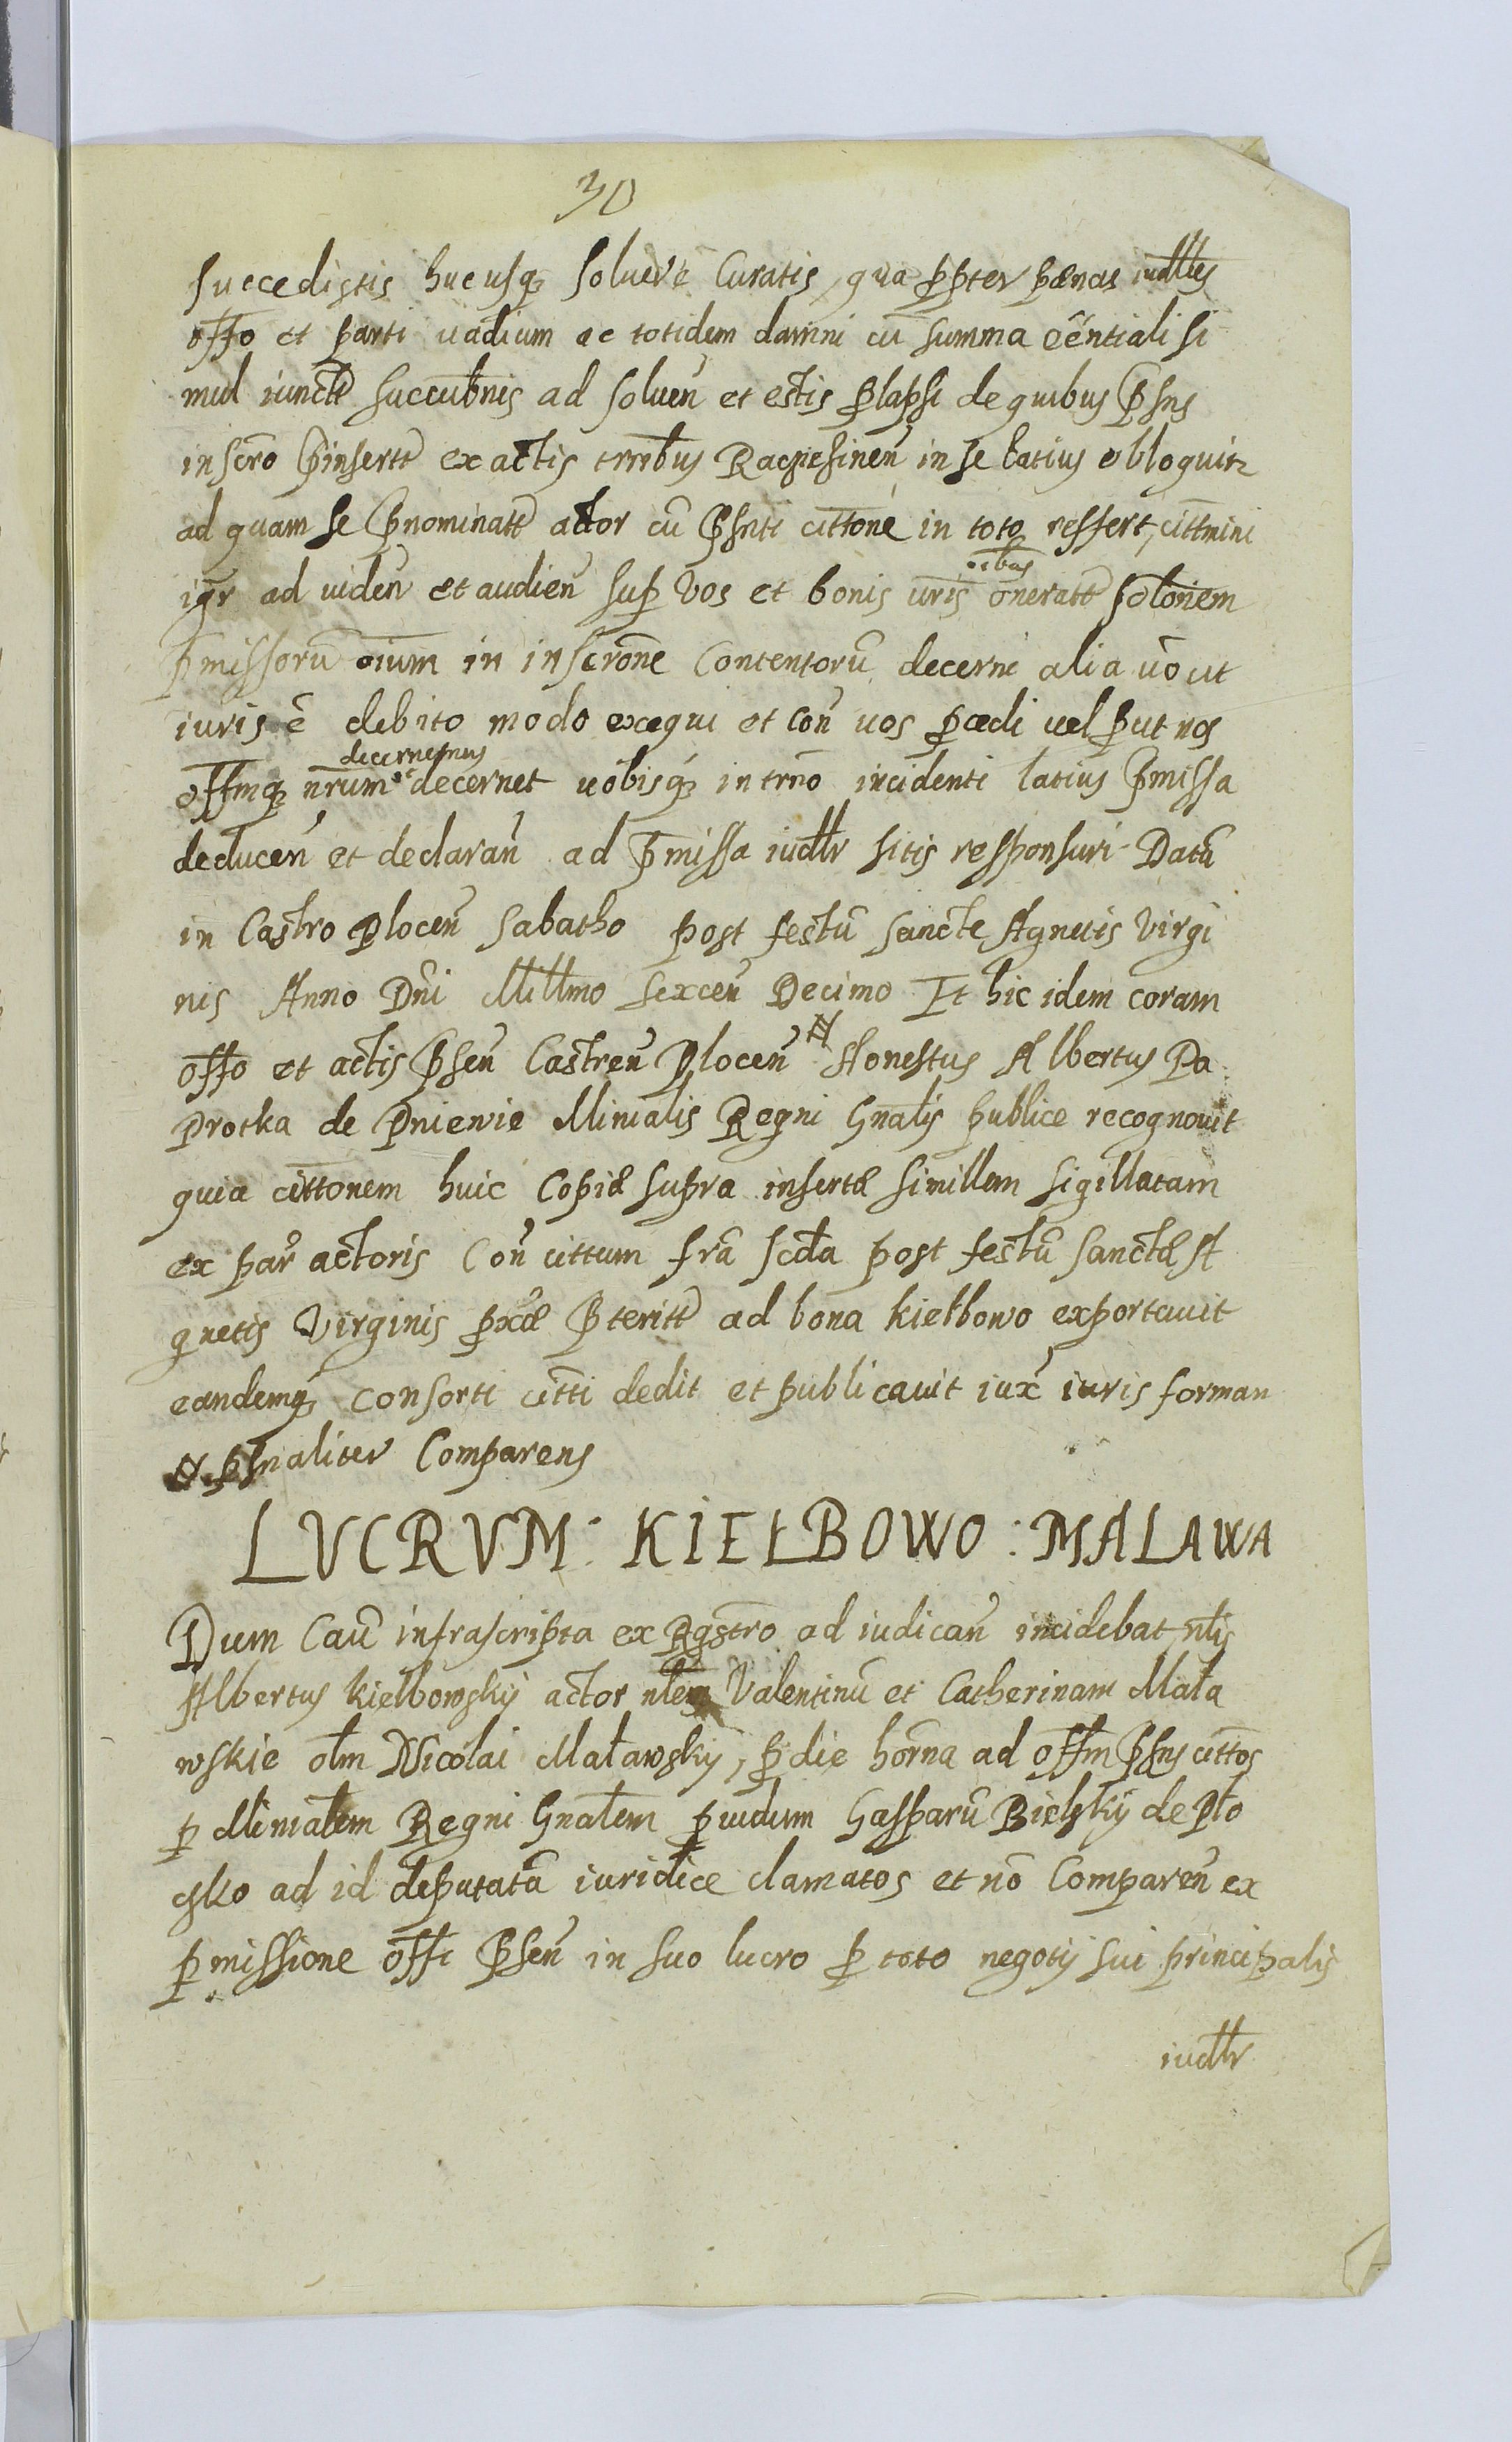 30
succedistis hucusq₃ soluere Curatis, qua ꝓpter pænas iudtles
offo et parti uadium ac totidem damni cũ summa eẽntiali si
mul iuncte succubnis ad soluen̄ et estis ꝓlapsi de quibus p̄sns
inscro p̄insertt ex actis trrrbus Raciesinen̄ in se latius obloquitr
ad quam se p̄nominatt actor cũ p̄snti cittone in toto reffert, cittmini
igr ad uiden̄ et audien̄ sup̱ vos et bonis ūris oībus oneratt solonem
p̄missorũ oium in inscrone Contentorũ decerni alia uo ut
iuris ẽ debito modo exequi et con̄ uos ꝓcedi uel ꝓut nos
offmq₃ nrum decernemus decernet uobisq₃ in trno incidenti latius p̄missa
deducen̄ et declaran̄ ad p̄missa iudtlr sitis responsuri Datũ
in Castro Plocen̄ Sabatho post festũ sancte Agnetis Virgi
nis Anno Dñi Milltmo Sexcen̄ Decimo Et hic idem coram
offo et actis p̄sen̄ Castren̄ Plocen̄ # Honestus Albertus Pa
Procka de Pniewie Minialis Regni Gnalis publice recognouit
quia cittonem huic Copiæ supra insertæ simillem sigillatam
ex par̄ actoris Con̄ cittum frã scda post festũ sanctæ A
gnetis Virginis ꝓxæ p̄teritt ad bona Kiełbowo exportauit
eandemq₃ Consorti citti dedit et publicauit iux̄ iuris forman
# p̱snaliter Comparens
LVCRVM: KIEŁBOWO: MALAWA
Dum Cau infrascripta ex Rgstro ad iudican̄ incidebat, nlis
Albertus Kiełbowskÿ actor nlem Valentinũ et Catherinam Mała
wskie olm Nicolai Maławskÿ, ꝓ die horna ad offm p̄sns cittos
p̱ Minialem Regni Gnalem ꝓuidum Gasparũ Bielskÿ de Pło
csko ad id deputatũ iuridice clamatos et nõ Comparen̄ ex
p̱missione offi p̄sen̄ in suo lucro ꝓ toto negotÿ sui principalis
iudtlr